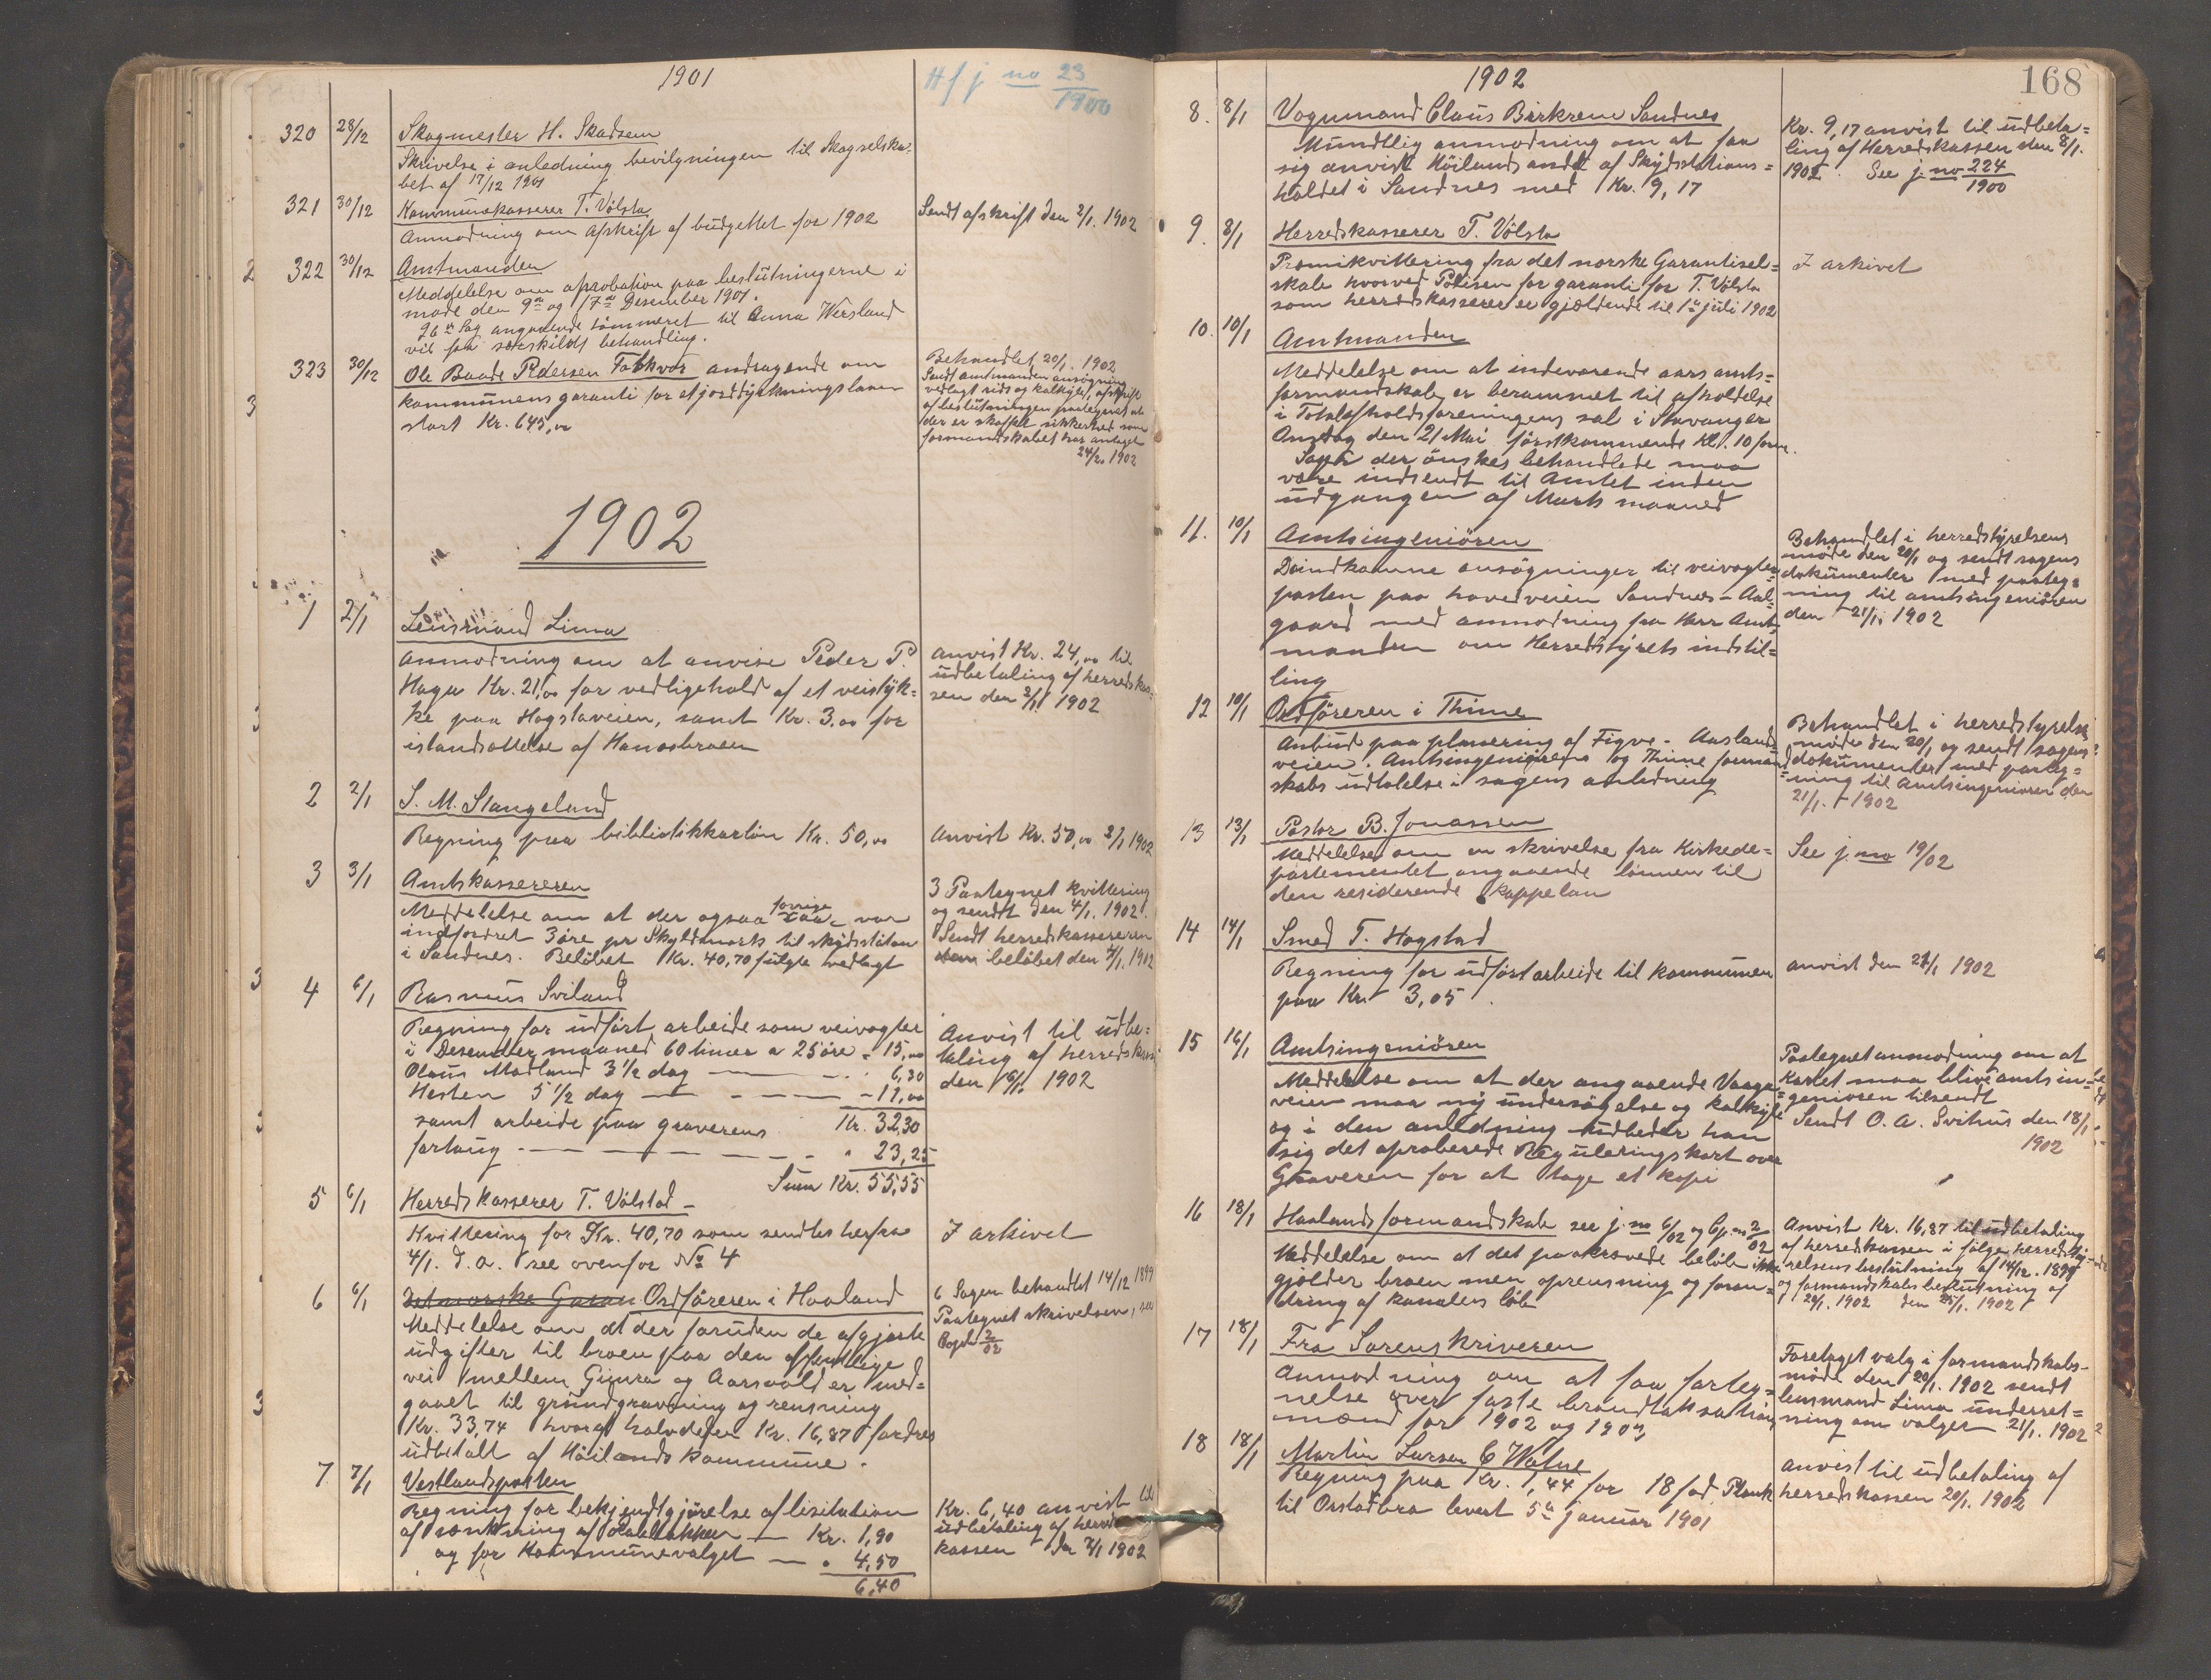 1901
H f j no 23/1900
320 28/12 Skogmester H. Skadsem
Skrivelse i anledning bevilgningen til Skogselska-
bet af 17/12 1901
321 30/12 Kommunekasserer T. Völsta
Anmodning om afskrift af budgettet for 1902
Sendt afskrift den 2/1. 1902
322 30/12 Amtmanden
Meddelelse om aprobation paa beslutningerne i
møde den 9de og 17de Desember 1901.
96de Sag angaaende tömmeret til Anna Wersland
vil faa særskildt behandling.
323 30/12 Ole Baade Pedersen Folkvor andragende om
kommunens garanti for et jorddyrkningslaan
stort Kr. 645,00
Behandlet 20/1. 1902
Sendt amtmanden ansögning
vedlagt rids og kalkyle, afskrift
af beslutningen paategnet at
der er skaffet sikkerhed som
formandskabet har antaget
24/2. 1902
1902
1 2/1 Lensmand Lima
Anmodning om at anvise Peder P.
Haga Kr. 21,00 for vedligehold af et veistyk=
ke paa Hogstaveien, samt Kr. 3.00 for
istandsættelse af Hanabroen
anvist Kr. 24,00 til
udbetaling af herredskas=
sen den 2/1 1902
2 2/1 S. M. Stangeland
Regning paa bibliotikkartön Kr. 50,00
anvist Kr. 50,00 2/1 1902
3 3/1 Amtskassereren
Meddelelse om at der ogsaa forrige var
indfordret 3 öre pr Skyldmark til skydsstation
i Sandnes. Belöbet Kr. 40,70 fulgte vedlagt
3 Paategnet kvittering
og sendt den 4/1. 1902.
Sendt herredskassereren
beløbet den 4/1. 1902
4 6/1 Rasmus Sviland
Regning for udfört arbeide som veivogter
i Desember maaned 60 timer a 25 öre = 15,00
Olaus Madland 3 1/2 dag — 6,30
Hesten 5 1/2 dag — 11,00
samt arbeide paa graverens Kr. 32,30
fortaug — 23,25
Sum Kr. 55,55
Anvist til udbe=
taling af herredskassen
den 6/1. 1902
5 6/1 Herredskasserer T. Völstad -
Kvittering for Kr. 40,70 som sendtes herfra
4/1. d. a. see ovenfor No 4
I arkivet
6 6/1 Det norske Garan Ordföreren i Haaland
Meddelelse om at der foruden de afgjorte
udgifter til broen paa den offentlige
vei mellem Gimra og Aarsvold er med=
gaaet til grundgravning og rensning
Kr. 33,74 hvoraf halvdelen Kr. 16,87 fordres
udbetalt af Höilands kommune.
6 Sagen behandlet 14/12 1899
Paategnet skrivelsen, see
Copib 2/02
7 7/1 Vestlandsposten
Regning for bekjendtgjørelse af lisitation
af sænkning af — Kr. 1,90
og for Kommunevalget — " 4,50
6,40
Kr. 6,40 anvist til
udbetaling af herreds
kassen den 7/1 1902
1902
168
8. 8/1 Vognmand Claus Birkrem Sandnes
Mundtlig anmodning om at faa
sig anvist Höilands andel af Skydsstations=
holdet i Sandnes med Kr. 9,17
Kr. 9,17 anvist til udbeta=
ling af Herredskassen den 8/1.
1902. See j. no 224/1900
9. 8/1 Herredskasserer T. Völsta
Præmikvittering fra det norske Garantisel=
skab hvorved Polisen for garanti for T. Völsta
som herredskasserer er gjældende til 1ste juli 1902
I arkivet
10. 10/1 Amtmanden
Meddelelse om at indeværende aars amts=
formandskab er berammet til afholdelse
i Totalafholdsforeningens sal i Stavanger
Onsdag den 21 Mai förstkommende Kl. 10 form.
Sager der önskes behandlede maa
være indsendt til Amtet inden
udgangen af Marts maaned
11. 10/1 Amtsingeniören
De indkomne ansögninger til veivogter=
posten paa hovedveien Sandnes - Aal=
gaard med anmodning fra Herr Amt=
manden om Herredstyrets indstil=
ling
Behandlet i herredstyrelsens
møde den 20/1 og sendt sagens
dokumenter med paateg=
ning til amtsingeniören
den 21/1. 1902
12 10/1 Ordföreren i Thime
Anbud paa planering af Figve - Aaslands
veien. Amtsingeniörens og Thime formand=
skabs udtalelse i sagens anledning
Behandlet i herredstyrelse
møde den 20/1 og sendt sagens
dokumenter med paateg=
ning til Amtsingeniøren den
21/1. 1902
13 13/1 Pastor B. Jonassen
Meddelelse om en skrivelse fra Kirkede=
partementet angaaende lönnen til
den residerende kappelan
See j. no 19/02
14 14/1 Smed T. Hogstad
Regning for udfört arbeide til kommunen
paa Kr. 3,05.
anvist den 21/1 1902
15 16/1 Amtsingeniören
Meddelelse om at der angaaende Vaaga=
veien maa ny undersögelse og kalkyle
og i den anledning udbeder han
sig det aproberede Reguleringskart over
Graveren for at tage et kopi
Paategnet anmodning om at
Kartet maa blive amtsin=
geniøren tilsendt
Sendt O. A. Svihus den 18/1
1902
16 18/1 Haalands formandskab see j. no 6/02 og Cp. no 2/02
Meddelelse om at det paakrævede beløb ikke
gjælder broen men oprensning og foran=
dring af kanalens løb
Anvist Kr. 16,87 til udbetaling
af herredskassen i fölge herredsty=
relsens beslutning af 14/12. 1899
og formandskabs beslutning af
24/1. 1902 den 25/1. 1902
17 18/1 Fra Sorenskriveren
Anmodning om at faa forteg=
nelse over faste brandtaksations
mænd for 1902 og 1903
Foretaget valg i formandskabs-
møde den 20/1. 1902 sendt
lensmand Lima underret=
ning om valget 21/1. 1902
18 18/1 Martin Larsen C Watne
Regning paa Kr. 1,44 for 18 fod Plank
til Orstadbro levert 5te januar 1901
anvist til udbetaling af
herredskassen 20/1. 1902